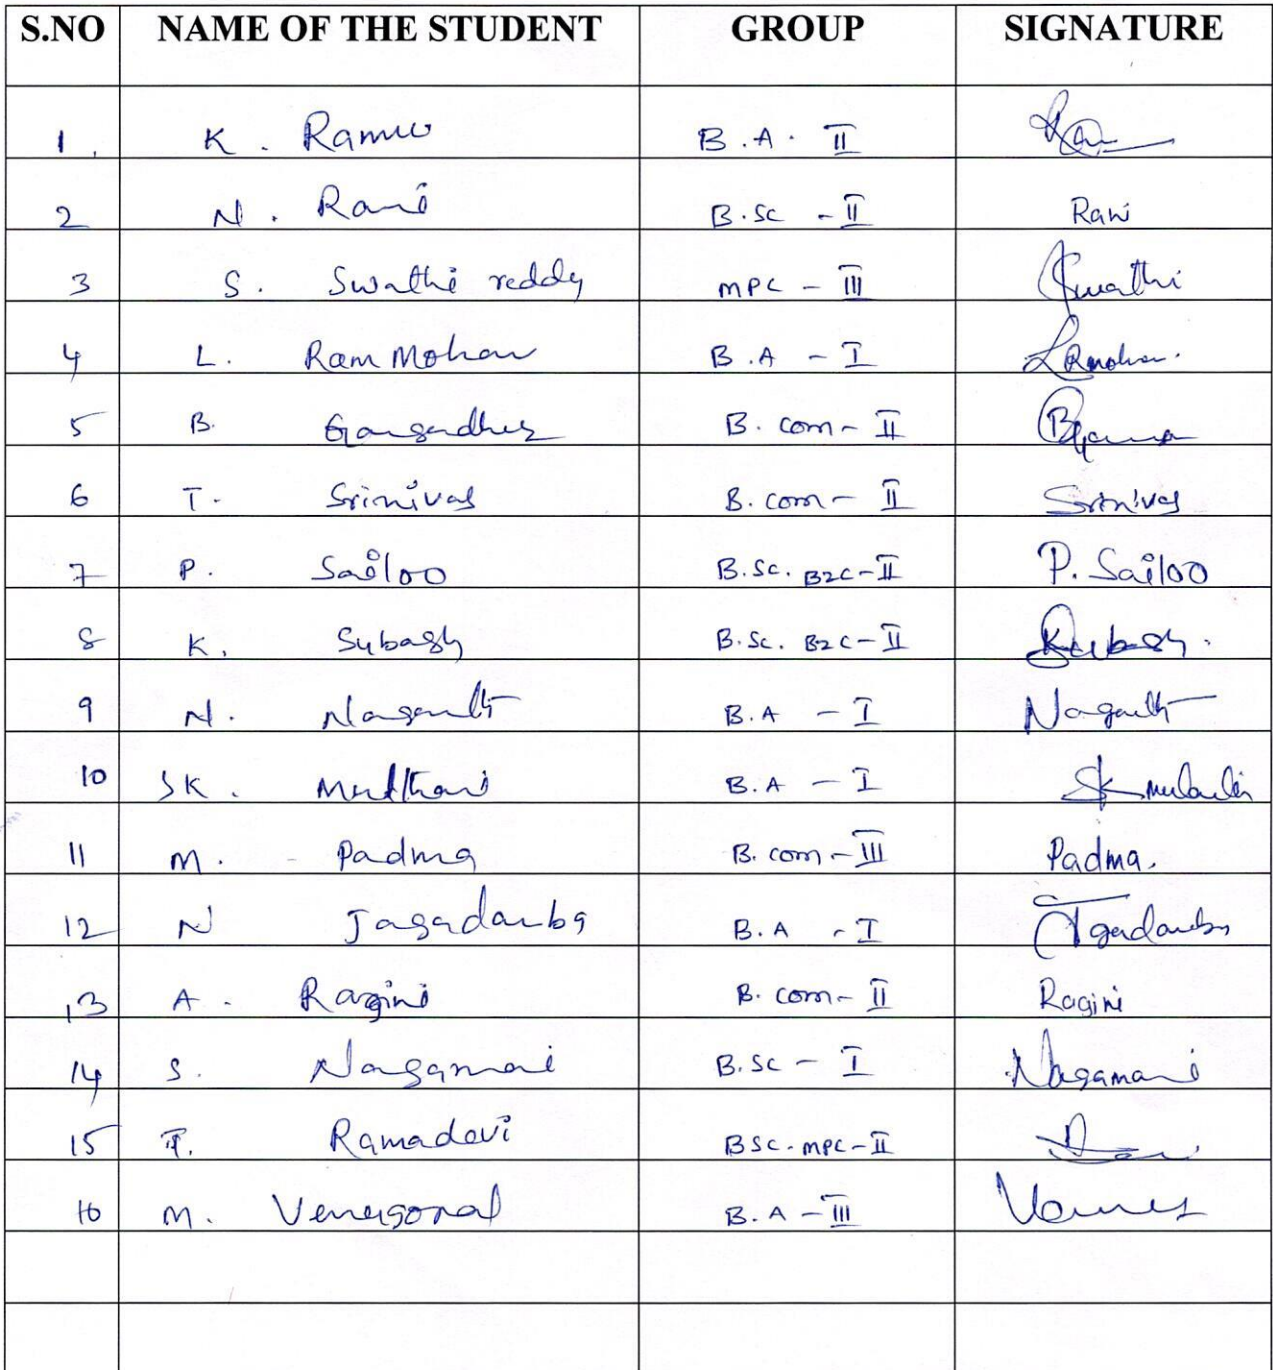 S.NO NAME OF THE STUDENT GROUP SIGNATURE
1. K. Ramu B.A. II
2 N. Rani B.Sc - II Rani
3 S. Swathi reddy MPC - III Swathi
4 L. Ram Mohan B.A - I
5 B. Gangadhar B.com - II
6 T. Srinivas B.com - II Srinivas
7 P. Sailoo B.Sc. BZC - II P. Sailoo
8 K. Subash B.Sc. BZC - II K Subash.
9 N. B.A - I
10 SK. B.A - I SK
11 M. Padma B.com - III Padma.
12 N Jagadamba B.A - I Jagadamba
13 A. Ragini B.com - II Ragini
14 S. Nagamani B.Sc - I Nagamani
15 T. Ramadevi BSc. MPC - II
16 M. Venugopal B.A - III